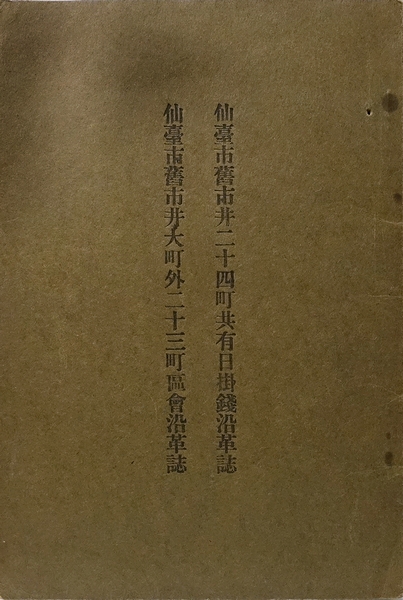 仙臺市舊市井二十四町共有日掛錢沿革誌
仙臺市舊市井大町外二十三町區會沿革誌